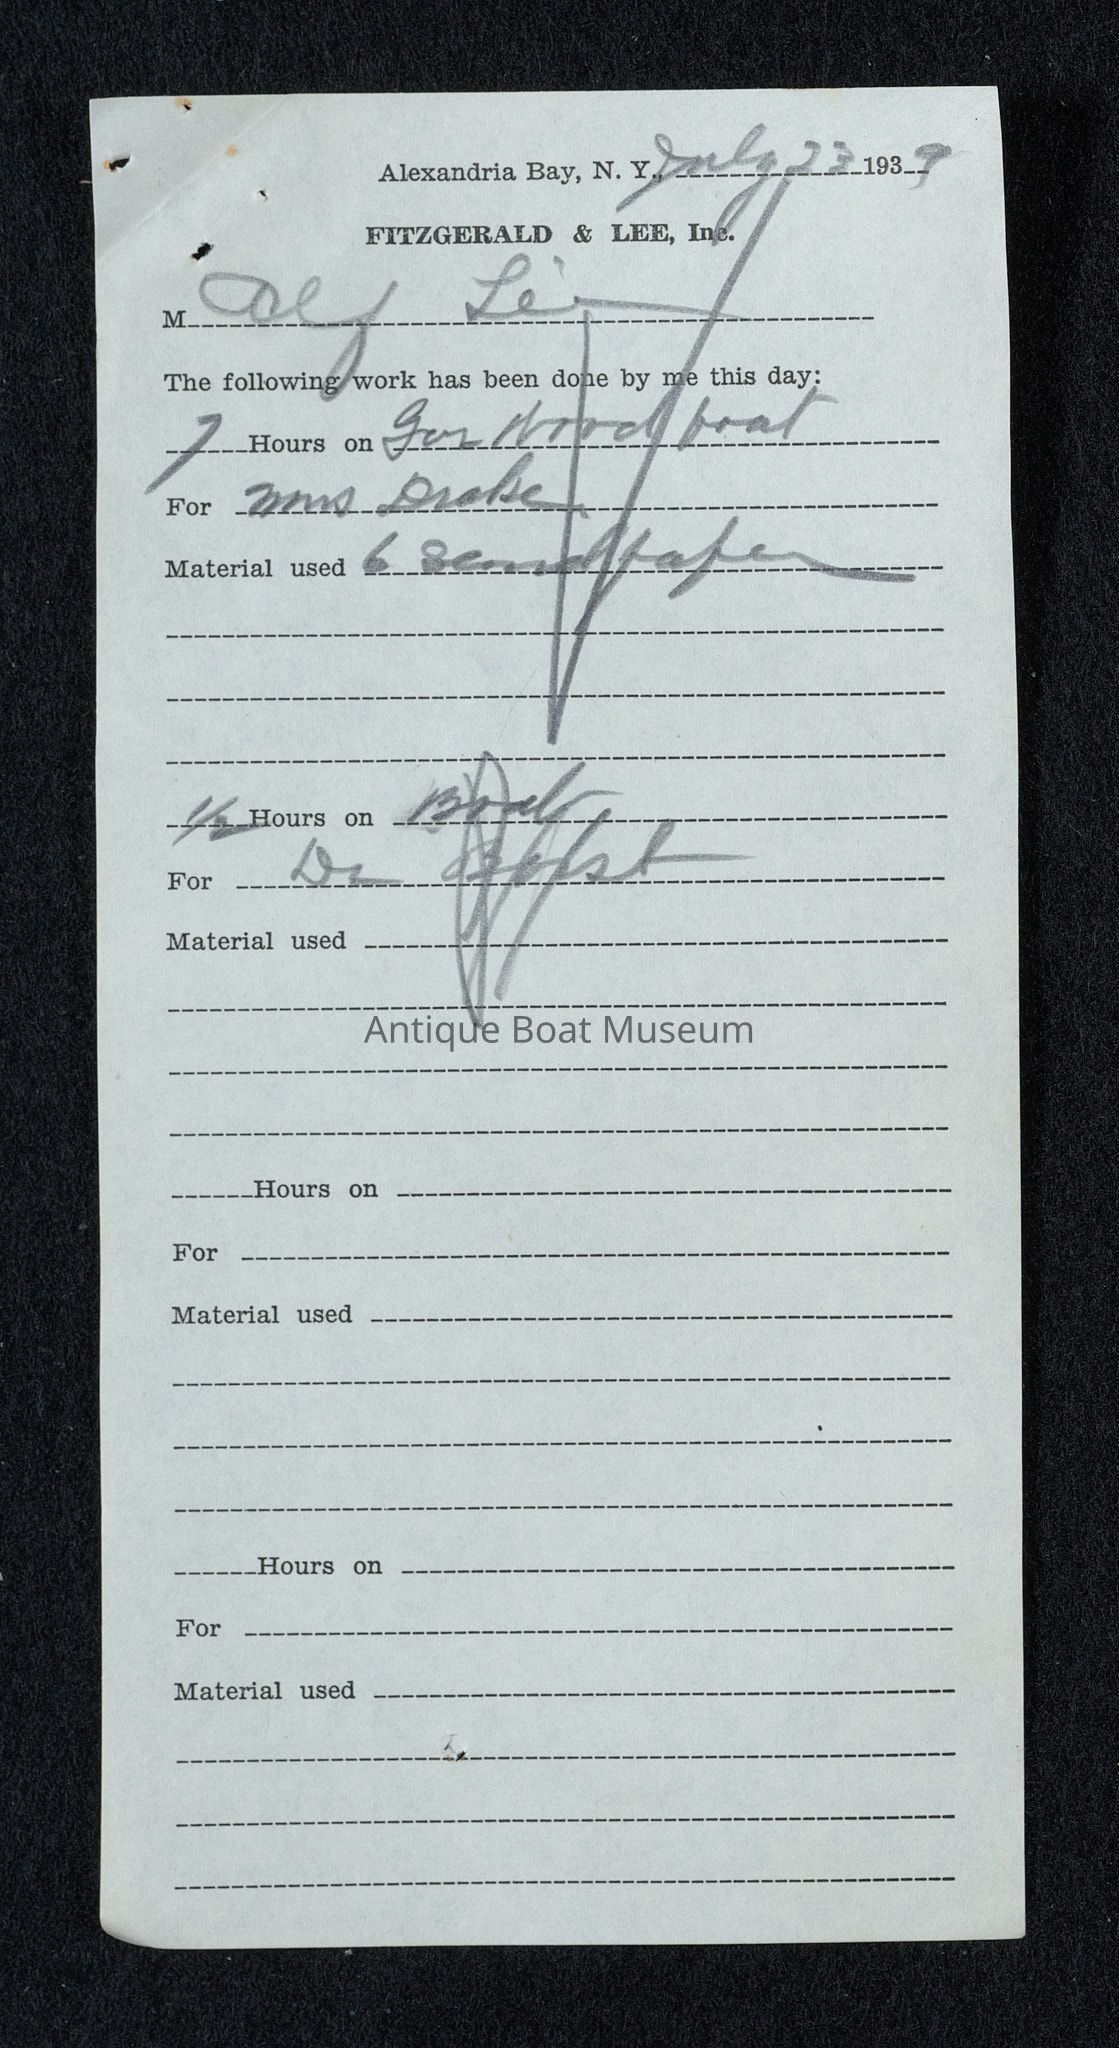 Alexandria Bay, N. Y., July 23 1939
FITZGERALD & LEE, Inc.
M Alf
The following work has been done by me this day:
7 Hours on Gar Wood boat
For Mrs Drake
Material used 6 Sandpaper
1/2 Hours on Boat
For Dr
Material used
Antique Boat Museum
Hours on
For
Material used
Hours on
For
Material used